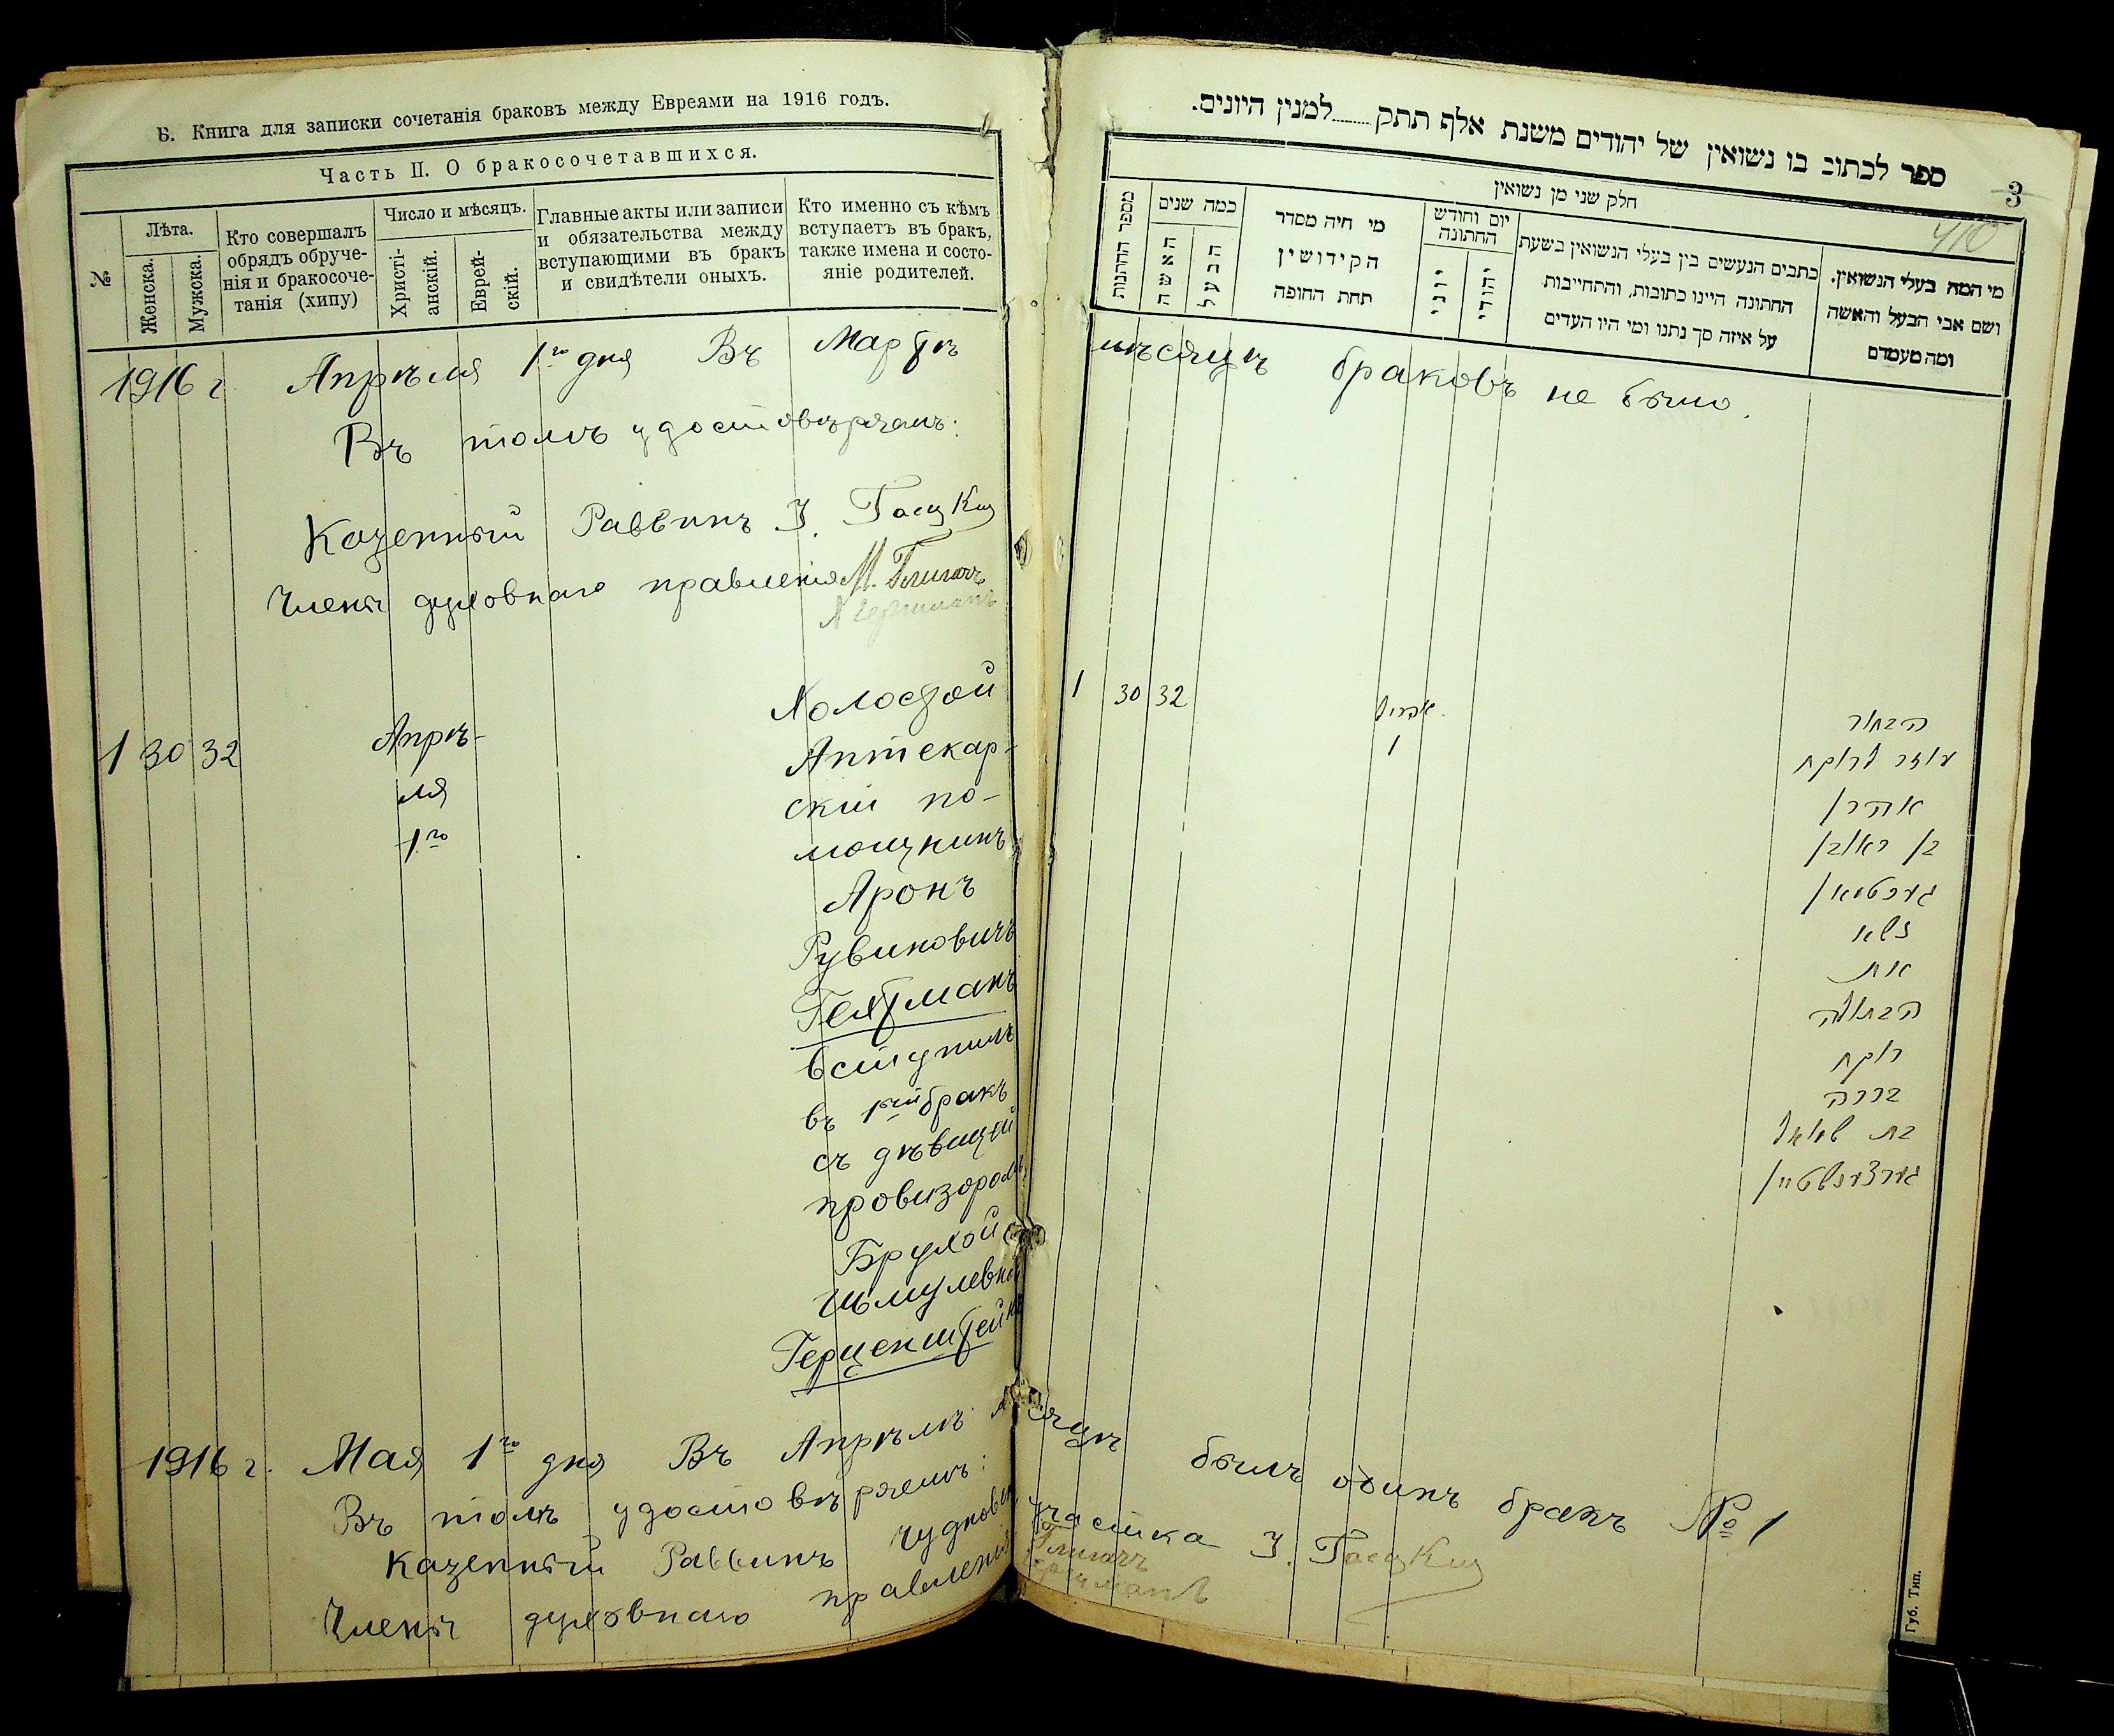 Б. Книга для записки сочетанія браковъ между Евреями на 1916 годъ.
Часть II. О бракосочетавшихся.
№
Лѣта.
Женска.
Мужска.
Кто совершалъ
обрядъ обруче-
нія и бракосоче-
танія (хипу)
Число и мѣсяцъ.
Христі-
анскій.
Еврей-
скій.
Главные акты или записи
и обязательства между
вступающими въ бракъ
и свидѣтели оныхъ.
Кто именно съ кѣмъ
вступаетъ въ бракъ,
также имена и состо-
яніе родителей.
ספר לכתוב בו נשואין של יהודים משנת אלף תתק........למנין היונים.
3
חלק שני מן נשואין
מספר החתונות
כמה שנים
האשה
הבעל
מי היה מסדר
הקידושין
תחת החופה
יום וחודש
החתונה
יוני
יהודי
כתבים הנעשים בין בעלי הנשואין בשעת
החתונה היינו כתובות, והתחייבות
על איזה סך נתנו ומי היו העדים
מי המה בעלי הנשואין.
ושם אבי הבעל והאשה
ומה מעמדם
1916 г Апрѣля 1го дня Въ Мартѣ мѣсяцѣ браковъ не было.
Въ томъ удостовѣряемъ:
Казенный Раввинъ
Члены духовнаго правленія
1 30 32
Апрѣ-
ля
1го
Холостой
Аптекар-
скій по-
мощникъ
Аронъ
Рувиновичъ
Гехтманъ
вступилъ
въ 1ый бракъ
съ дѣвицей
провизоромъ
Брухой
Шмулевной
Герценштейнъ
1 30 32
אפריל
1
הבחור
עוזר לרוקח
אהרן
בן ראובן
געכטמאן
נשא
את
הבתולה
רוקח
ברכה
בת שמואל
גערצענשטיין
1916 г. Мая 1го дня Въ Апрѣлѣ мѣсяцѣ былъ одинъ бракъ № 1
Въ томъ удостовѣряемъ:
Казенный Раввинъ Чуднов. участка
Члены духовнаго правленія
Губ. Тип.